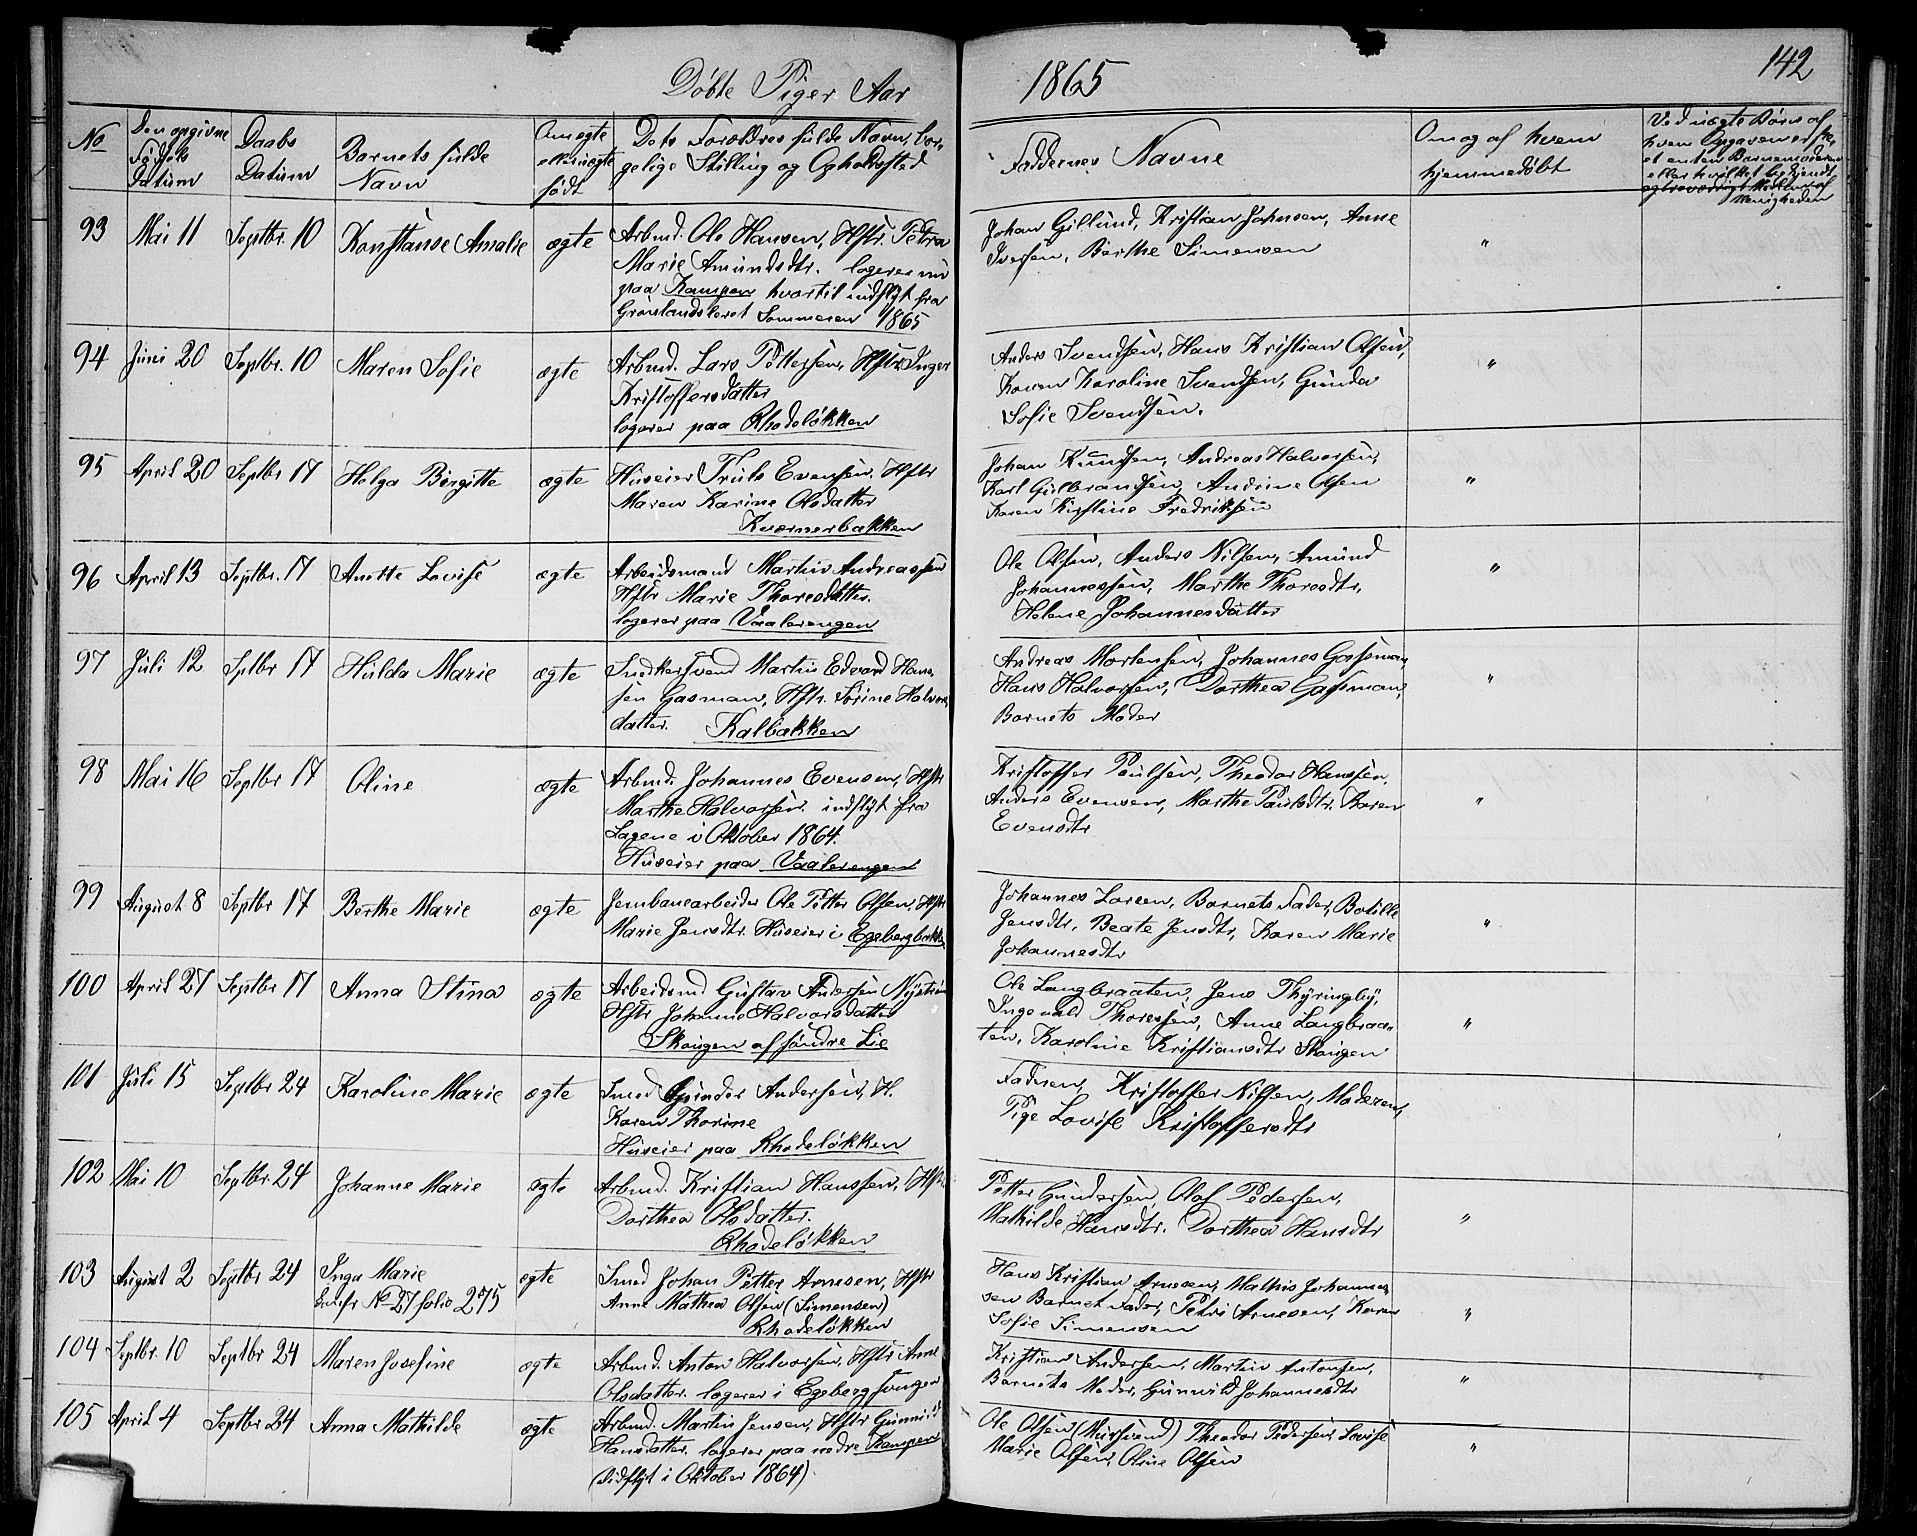 Døbte Piger Aar 1865
142
No
Den opgivne Fødsels Datum
Daabs Datum
Barnets fulde Navn
Om ægte eller uægte født
Dets Forældres fulde Navn, borgelige Stilling og Opholdssted
Faddernes Navne
Om og af hvem hjemmedøbt
Ved uægte Børn af hvem Opgaven er
93 Mai 11 Septbr. 10 Konstanse Amalie ægte Arbmd. Ole Hansen, Hstr. Petra
Marie Amundsdtr. logerer nu
paa Kampen hvortil indflyt fra
Grønlandsleret Sommeren 1865
Johan Gillund, Kristian Johnsen, Anne
Iversen, Berthe Simensen "
94 Juni 20 Septbr. 10 Maren Sofie ægte Arbmd. Lars Pettersen, Hstr. Inger
Kristoffersdatter
logerer paa Rhodeløkken
Anders Svendsen, Hans Kristian Olsen,
Karen Karoline Svendsen, Gunda
Sofie Svendsen. "
95 April 20 Septbr 17 Helga Birgitte ægte Huseier Truls Evensen, Hstr
Maren Karine Olsdatter
Kværnerbakken
Johan Knudsen, Andreas Halvorsen,
Karl Gulbrandsen, Andrine Olsen
Karen Kirstine Fredriksen "
96 April 13 Septbr. 17 Anette Lovise ægte Arbeidsmand Martin Andreassen
Hstr Marie Thoresdatter.
logerer paa Vaalerengen
Ole Olsen, Anders Nilsen, Amund
Johannessen, Marthe Thoresdtr,
Helene Johannesdatter "
97 Juli 12 Sptbr 17 Hulda Marie ægte Snedkersvend Martin Edvard Hans-
sen Gasman, Hstr. Sørine Halvors
datter. Kalbakken
Andreas Mortensen, Johannes Gassman,
Hans Halvorsen, Dorthea Gassman,
Barnets Moder "
98 Mai 16 Septbr 17 Oline ægte Arbmd. Johannes Evensen, Hstr
Marthe Halvorsen. indflyt fra
Sagene i Oktober 1864.
Huseier paa Vaalerengen
Kristoffer Paulsen, Theodor Hanssen,
Anders Evensen, Marthe Paulsdtr, Karen
Evensdtr "
99 August 8 Septbr 17 Berthe Marie ægte Jernbanearbeider Ole Petter Olsen, Hstr
Marie Jensdtr. Huseier i Egebergbakken
Johannes Loreen, Barnets Fader, Botille
Jensdtr, Beate Jensdtr, Karen Marie
Johannesdtr "
100 April 27 Septbr 17 Anna Stina ægte Arbeidsmd Gustav Andersen Nystrøm
Hstr Johanne Halvorsdatter
Skougen af søndre Lie
Ole Langbraaten, Jens Thyringby,
Ingevald Thoresen, Anne Langbraa-
ten, Karoline Kristiansdtr Skougen "
101 Juli 15 Septbr 24 Karoline Marie ægte Smed Gunder Andersen, H.
Karen Thorine
Huseier paa Rhodeløkken
Faderen, Kristoffer Nilsen, Moderen,
Pige Lovise Kristoffersdtr
102 Mai 10 Septbr. 24 Johanne Marie ægte Arbmd. Kristian Hanssen, Hstr.
Dorthea Olsdatter.
Rhodeløkken
Petter Gundersen, Olaf Pedersen,
Mathilde Hansdtr. Dorthea Hansdtr "
103 August 2 Septbr 24 Inga Marie ægte Smed Johan Petter Arnesen, Hstr
No 27 folio 275 Anne Mathea Olsen (Simensen)
Rhodeløkken
Hans Kristian Arnesen, Mathis Johannes-
sen Barnets Fader, Petri Arnesen, Karen
Sofie Simensen "
104 Septbr. 10 Septbr 24 Maren Josefine ægte Arbmd. Anton Halvorsen, Hstr Anne
Olsdatter. logerer i Egebergsvingen
Kristian Andersen, Martin Antonsen,
Barnets Moder, Gunnild Johannesdtr "
105 April 4 Septbr 24 Anna Mathilde ægte Arbmd. Martin Jensen, Hstr Gunnild
Hansdatter. logerer paa nedre Kampen
(Indflyt i Oktober 1864).
Ole Olsen (Mursvend) Theodor Pedersen, Lovise
Marie Olsen, Oline Olsen "